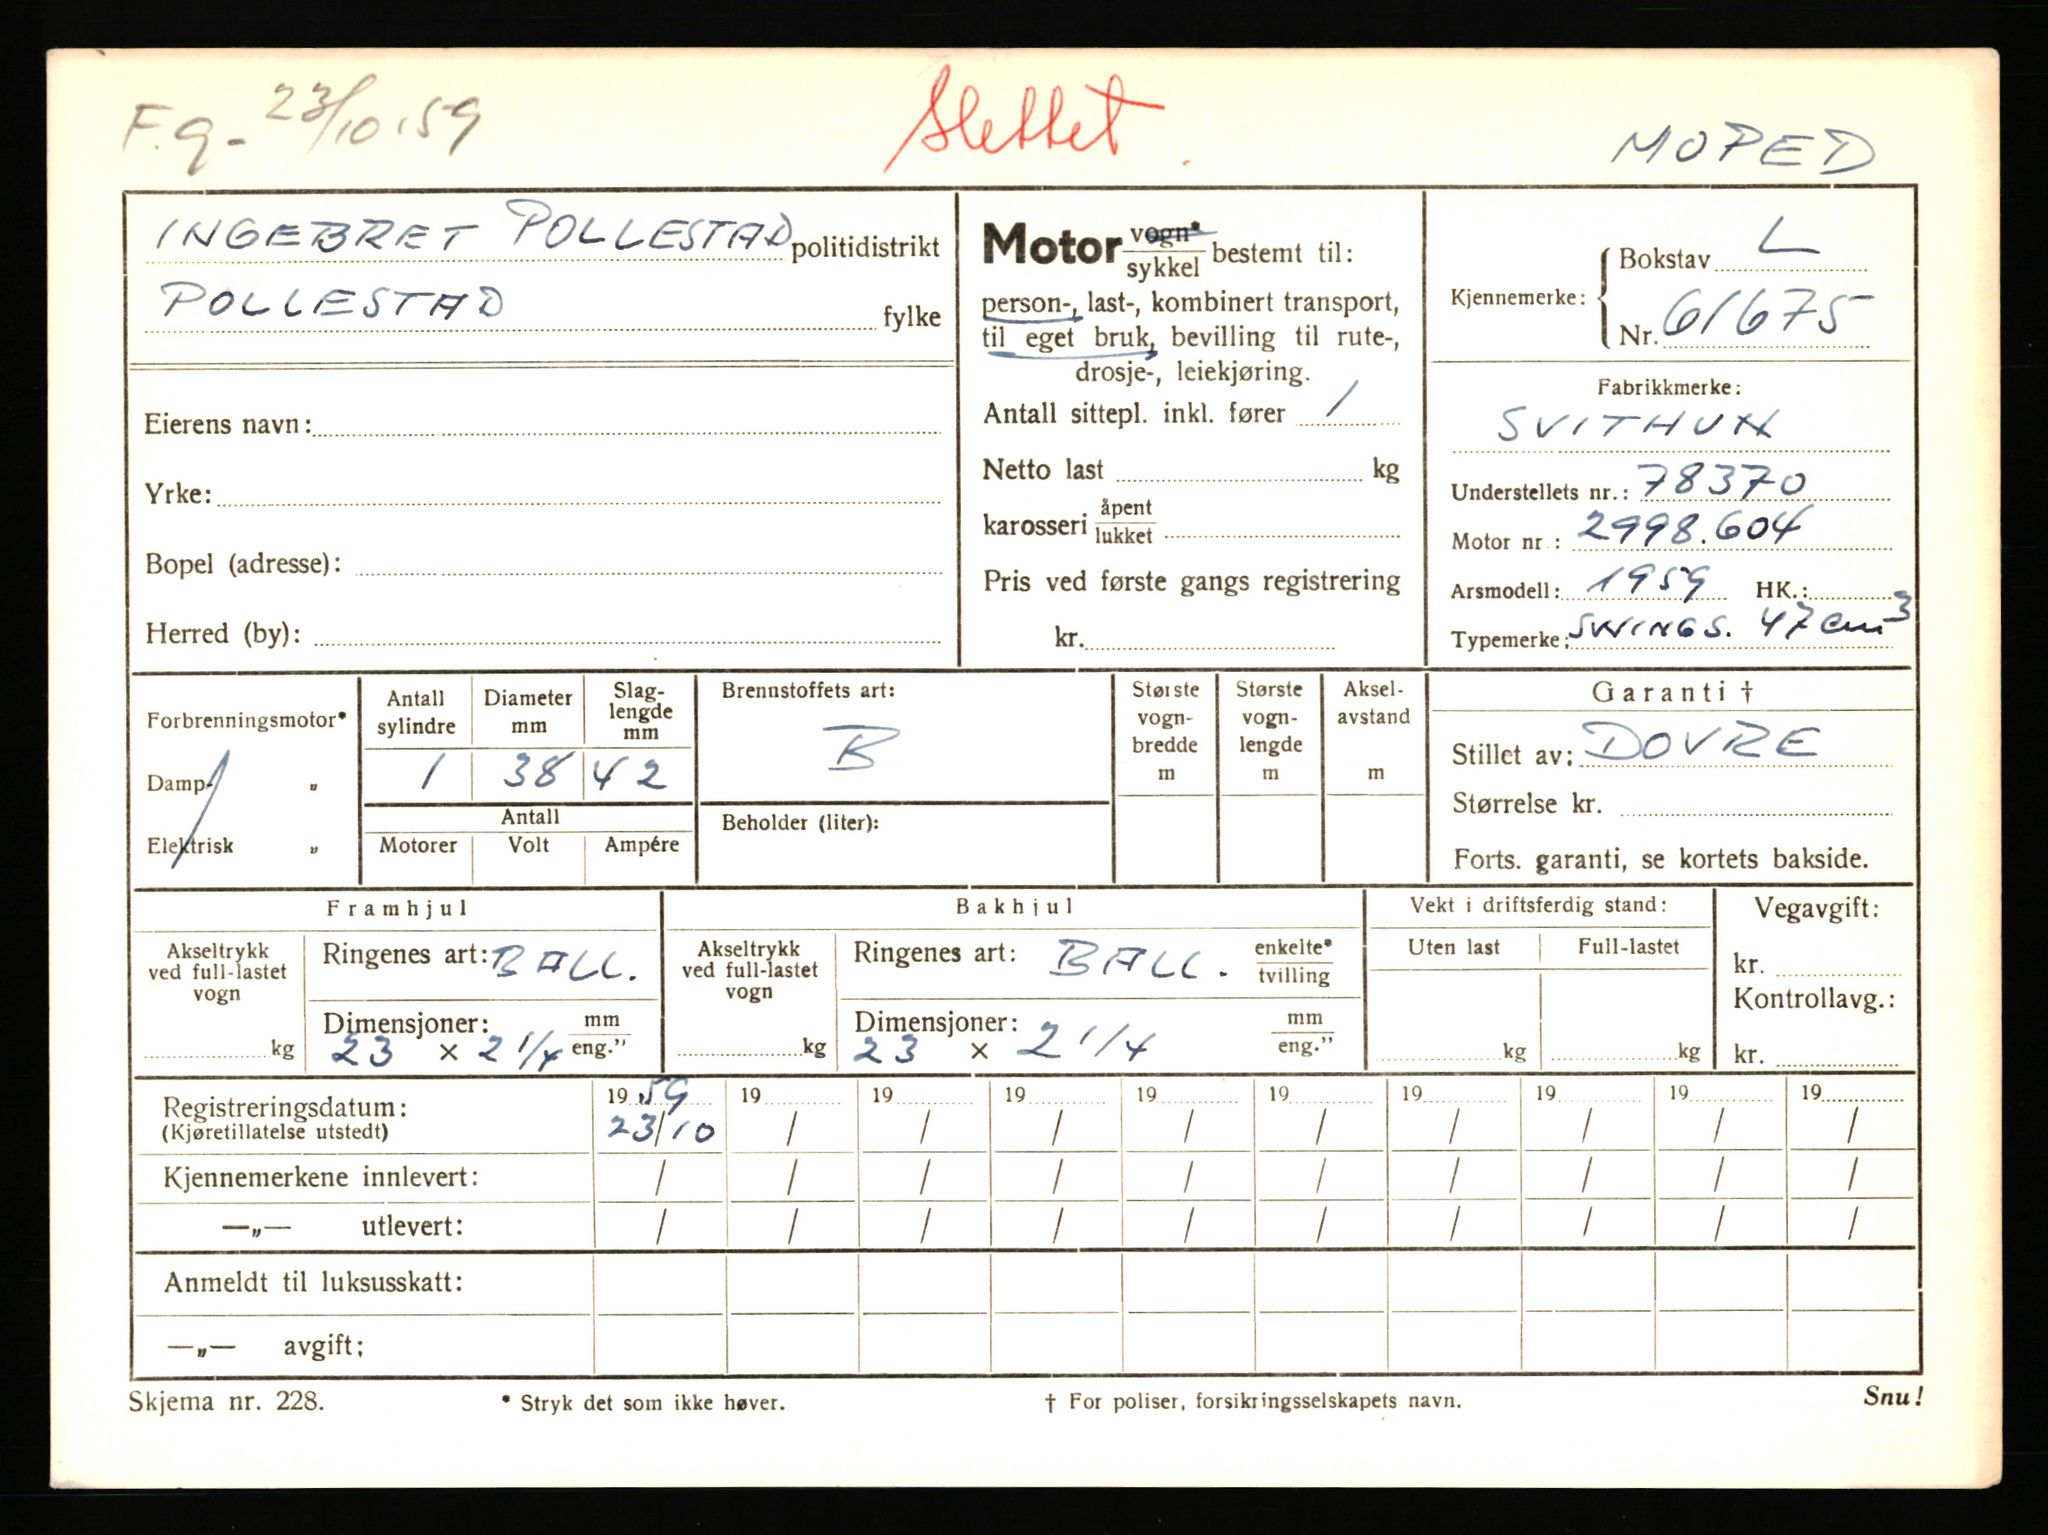 F.g. 23/10.59
Slettet.
MOPED
INGEBRET POLLESTAD politidistrikt
POLLESTAD fylke
Eierens navn:
Yrke:
Bopel (adresse):
Herred (by):
Motor vogn* / sykkel bestemt til:
person-, last-, kombinert transport,
til eget bruk, bevilling til rute-,
drosje-, leiekjøring.
Antall sittepl. inkl. fører 1
Netto last kg
karosseri åpent / lukket
Pris ved første gangs registrering
kr.
Kjennemerke: Bokstav L
Nr. 61675
Fabrikkmerke:
SVITHUN
Understellets nr.: 78370
Motor nr.: 2998.604
Arsmodell: 1959 HK.:
Typemerke: SWINGS. 47 cm3
Forbrenningsmotor*
Damp- „
Elektrisk „
Antall sylindre
Diameter mm
Slag-lengde mm
1 38 42
Antall
Motorer Volt Ampére
Brennstoffets art:
B
Beholder (liter):
Største vogn-bredde m
Største vogn-lengde m
Aksel-avstand m
Garanti †
Stillet av: DOVRE
Størrelse kr.
Forts. garanti, se kortets bakside.
Framhjul
Akseltrykk ved full-lastet vogn
kg
Ringenes art: BALL.
Dimensjoner: mm / eng."
23 x 2 1/4
Bakhjul
Akseltrykk ved full-lastet vogn
kg
Ringenes art: BALL. enkelte* / tvilling
Dimensjoner: mm / eng."
23 x 2 1/4
Vekt i driftsferdig stand:
Uten last Full-lastet
kg kg
Vegavgift:
kr.
Kontrollavg.:
kr.
Registreringsdatum: 19 59 19 19 19 19 19 19 19 19 19
(Kjøretillatelse utstedt) 23/10 / / / / / / / / /
Kjennemerkene innlevert: / / / / / / / / / /
—„— utlevert: / / / / / / / / / /
Anmeldt til luksusskatt:
—„— avgift:
Skjema nr. 228. * Stryk det som ikke høver. † For poliser, forsikringsselskapets navn. Snu!